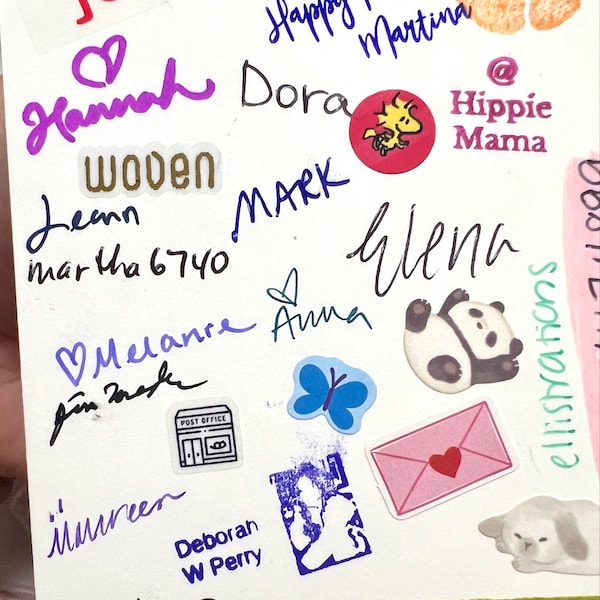 Happy
Martina
Hannah
Dora
@
Hippie
Mama
WOVEN
MARK
Leann
martha6740
Elena
Anna
Melanie
POST OFFICE
ellistrations
Maureen
Deborah
W Perry